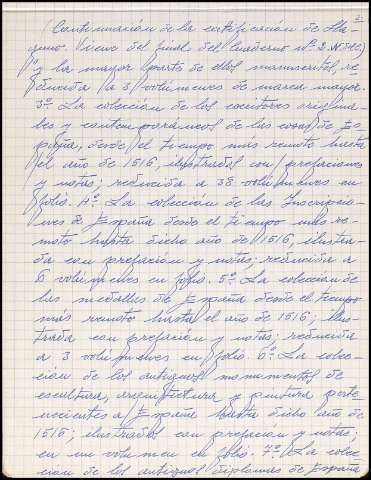 (Continuación de la certificación de Lla-
guno. Viene del final del Cuaderno nº 2
"y la mayor parte de ellos manuscritos, re-
ducida a 3 volúmenes de marca mayor.
3º. La colección de los escritores origina-
les y contemporáneos de las cosas de Es-
paña, desde el tiempo más remoto hasta
el año de 1516, ilustrados con prefaciones
y notas; reducida a 38 volúmenes en
folio. 4º. La colección de las Inscripcio-
nes de España desde el tiempo más re-
moto hasta dicho año de 1516, ilustra-
da con prefación y notas; reducida a
6 volúmenes en folio. 5º. La colección de
las medallas de España desde el tiempo
más remoto hasta el año de 1516; ilus-
trada con prefación y notas; reducida
a 3 volúmenes en folio. 6º. La colec-
ción de los antiguos monumentos de
escultura, arquitectura y pintura perte-
necientes a España hasta dicho año de
1516; ilustrados con prefación y notas;
en un volumen en folio. 7º. La colec-
ción de los antiguos diplomas de España